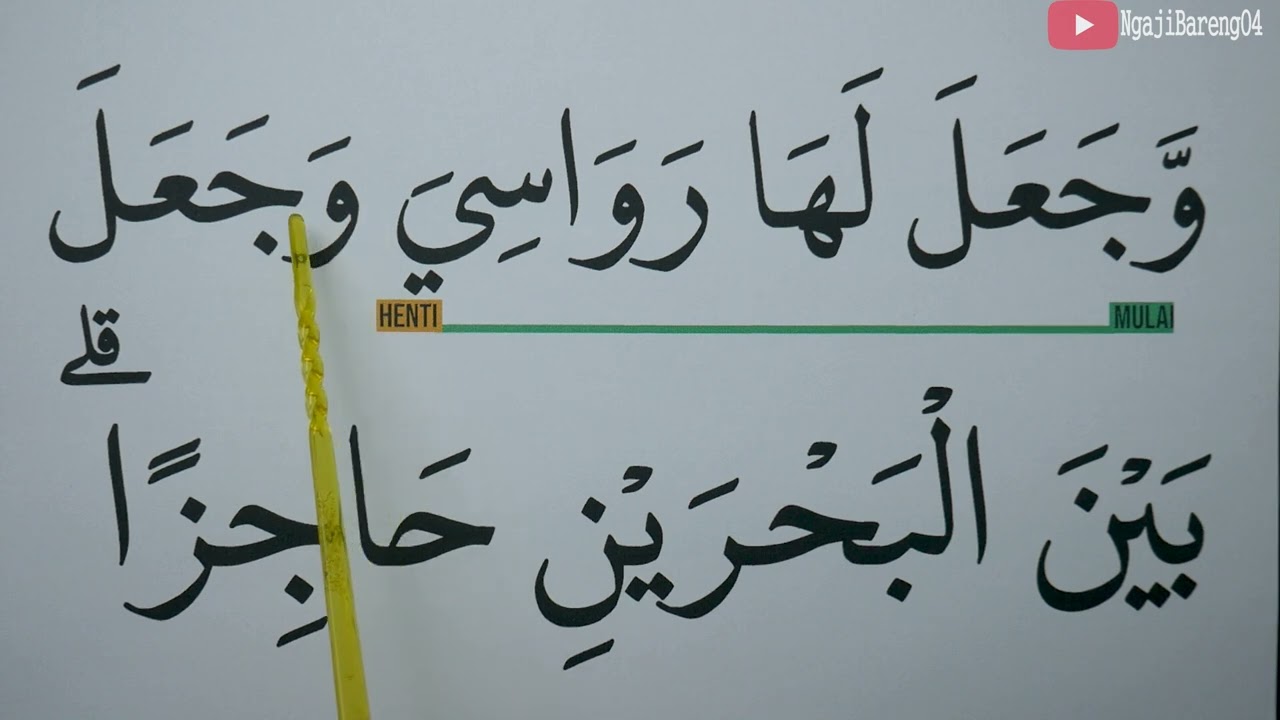 NgajiBareng04
وَّجَعَلَ لَهَا رَوَاسِيَ وَجَعَلَ
HENTI MULAI
قلے
بَيْنَ الْبَحْرَيْنِ حَاجِزًا